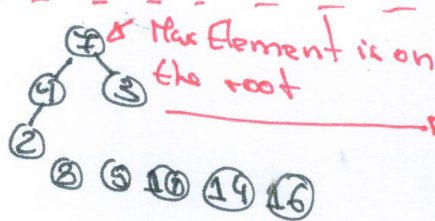 7 Max Element is on
4 3 the root
2
8 9 10 14 16